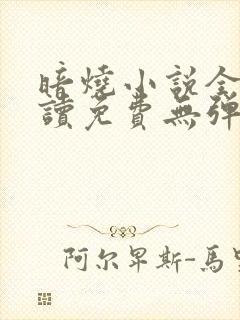 暗燒小説全
讀免費無彈
阿尔卑斯-馬